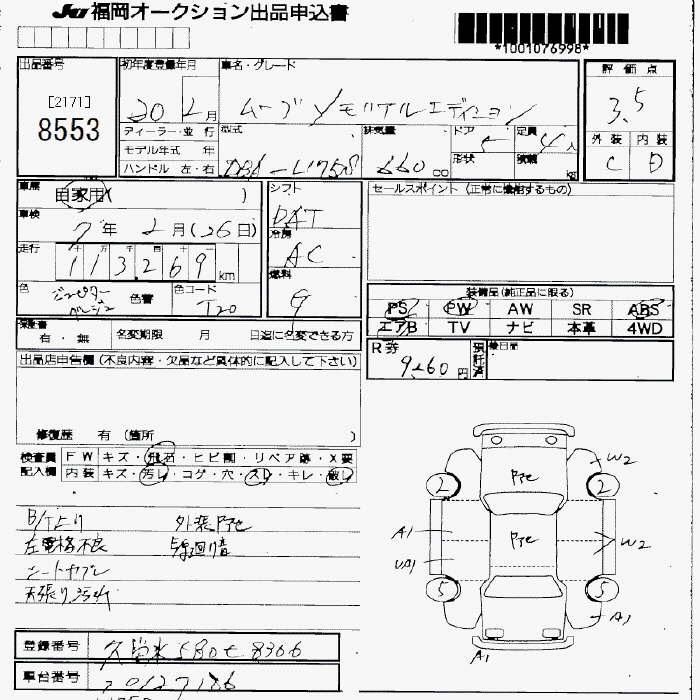 JU 福岡オークション出品申込書
*1001076998*
出品番号 初年度登録年月 車名・グレード 評価点
[2171] 20 年 2 月 ムーブ メモリアルエディション 3.5
8553
ディーラー・並行 型式 排気量 ドア 5 定員 4 人 外装 内装
モデル年式 年 形状 積載 kg
ハンドル 左・右 DBA-L175S 660 cc C D
車歴 自家用( ) シフト セールスポイント (正常に機能するもの)
車検 7年 2月(26日) DAT
冷房
走行 113,269 km AC
燃料
色 ジュピターベージュ 色替 色コード T20 G
装備品(純正品に限る)
PS PW AW SR ABS
エアB TV ナビ 本革 4WD
保証書 有・無 名変期限 月 日迄に名変できる方
R券 9,260円 預託済 後日品
出品店申告欄 (不良内容・欠品など具体的に記入して下さい)
修復歴 有 (箇所 )
検査員 FW キズ・飛石・ヒビ割・リペア跡・X要
記入欄 内装 キズ・汚レ・コゲ・穴・スレ・キレ・破レ
W2
Pre
2 2
B/Tより 外装Pre
A1 Pre W2
左電格不良
シートヤブレ
UA1
天張り汚れ
5 5
A1
A1
登録番号 久留米 580 せ 8366
車台番号 20127186